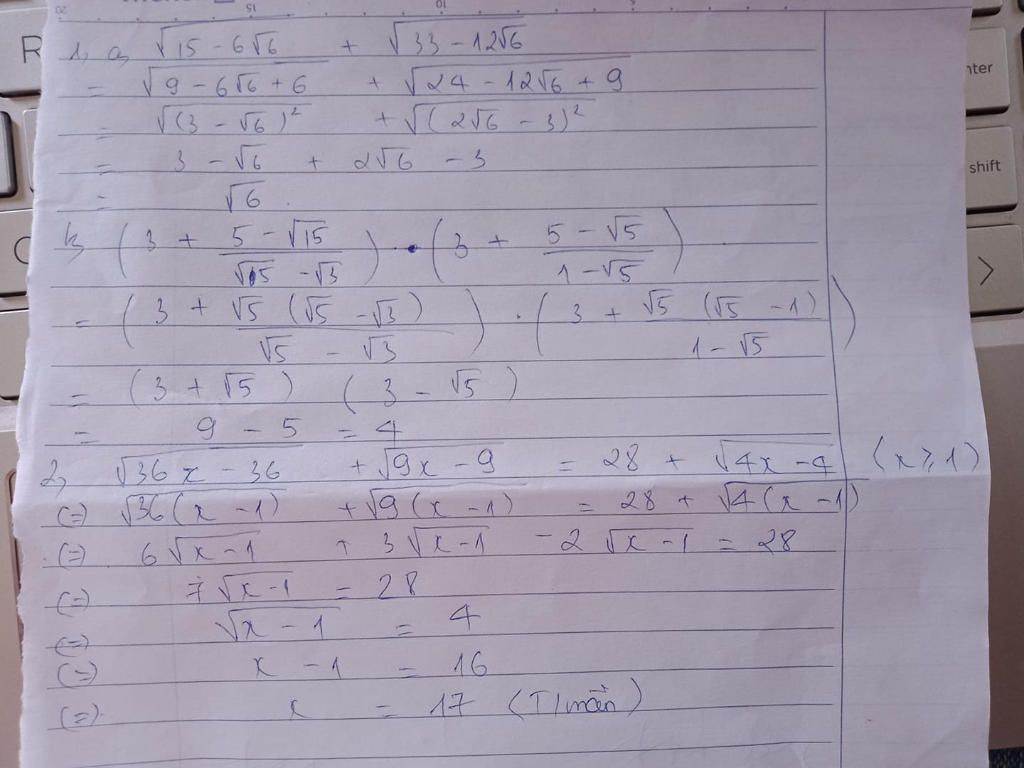 1, a, √15 - 6√6 + √33 - 12√6
= √9 - 6√6 + 6 + √24 - 12√6 + 9
= √(3 - √6)² + √(2√6 - 3)²
= 3 - √6 + 2√6 - 3
= √6.
b, (3 + (5 - √15)/(√5 - √3)) · (3 + (5 - √5)/(1 - √5))
= (3 + √5 (√5 - √3)/(√5 - √3)) · (3 + √5 (√5 - 1)/(1 - √5))
= (3 + √5) (3 - √5)
= 9 - 5 = 4
2, √36x - 36 + √9x - 9 = 28 + √4x - 4 (x ≥ 1)
(=) √36(x - 1) + √9(x - 1) = 28 + √4(x - 1)
(=) 6√x - 1 + 3√x - 1 - 2√x - 1 = 28
(=) 7√x - 1 = 28
(=) √x - 1 = 4
(=) x - 1 = 16
(=) x = 17 (T/mãn)
R
nter
shift
>